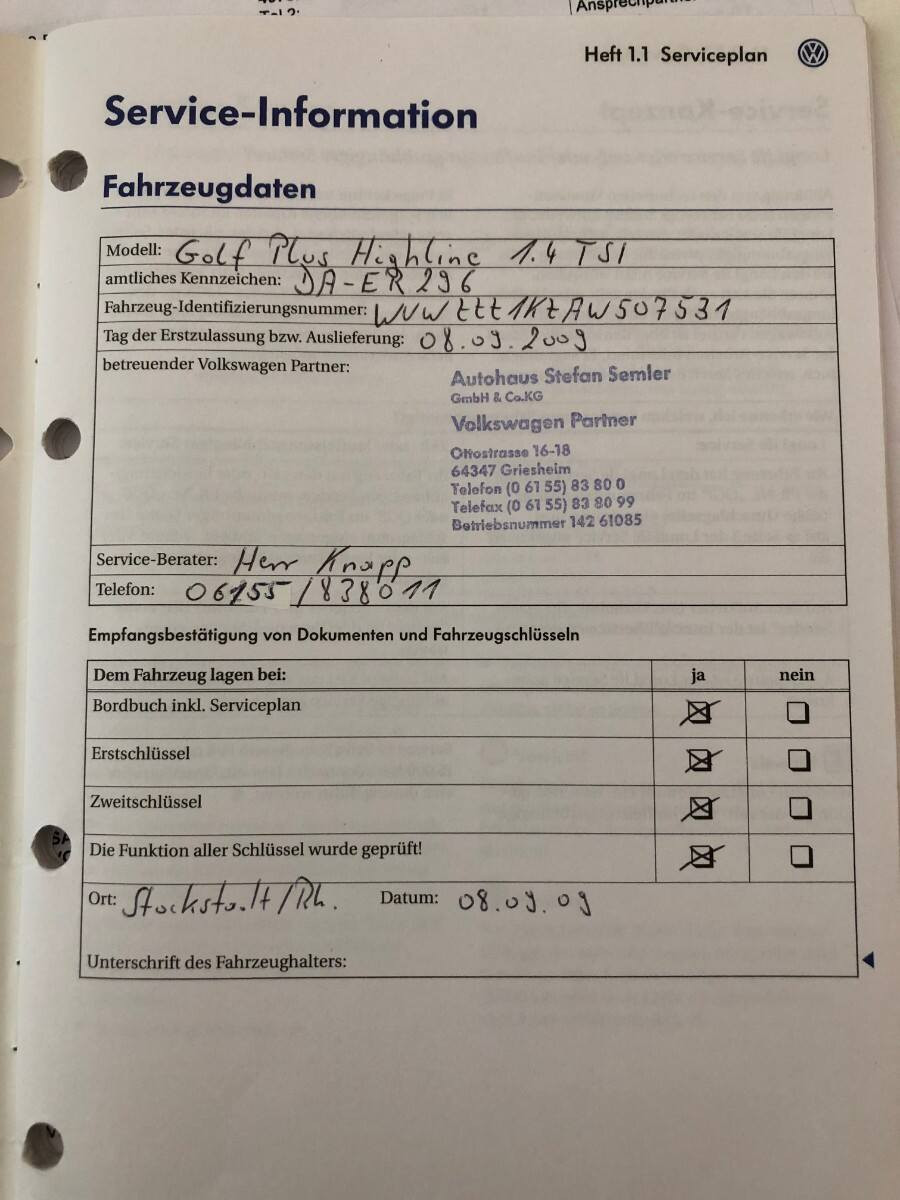 Ansprechpartner
Tel 2:
Heft 1.1 Serviceplan
Service-Information
Fahrzeugdaten
Modell: Golf Plus Highline 1.4 TSI
amtliches Kennzeichen: DA-ER 296
Fahrzeug-Identifizierungsnummer: WVWZZZ1KZAW507531
Tag der Erstzulassung bzw. Auslieferung: 08.09.2009
betreuender Volkswagen Partner:
Autohaus Stefan Semler
GmbH & Co.KG
Volkswagen Partner
Ottostrasse 16-18
64347 Griesheim
Telefon (0 61 55) 83 80 0
Telefax (0 61 55) 83 80 99
Betriebsnummer 142 61085
Service-Berater: Herr Knapp
Telefon: 06155/838011
Empfangsbestätigung von Dokumenten und Fahrzeugschlüsseln
Dem Fahrzeug lagen bei: ja nein
Bordbuch inkl. Serviceplan
Erstschlüssel
Zweitschlüssel
Die Funktion aller Schlüssel wurde geprüft!
Ort: Stockstadt/Rh. Datum: 08.09.09
Unterschrift des Fahrzeughalters: